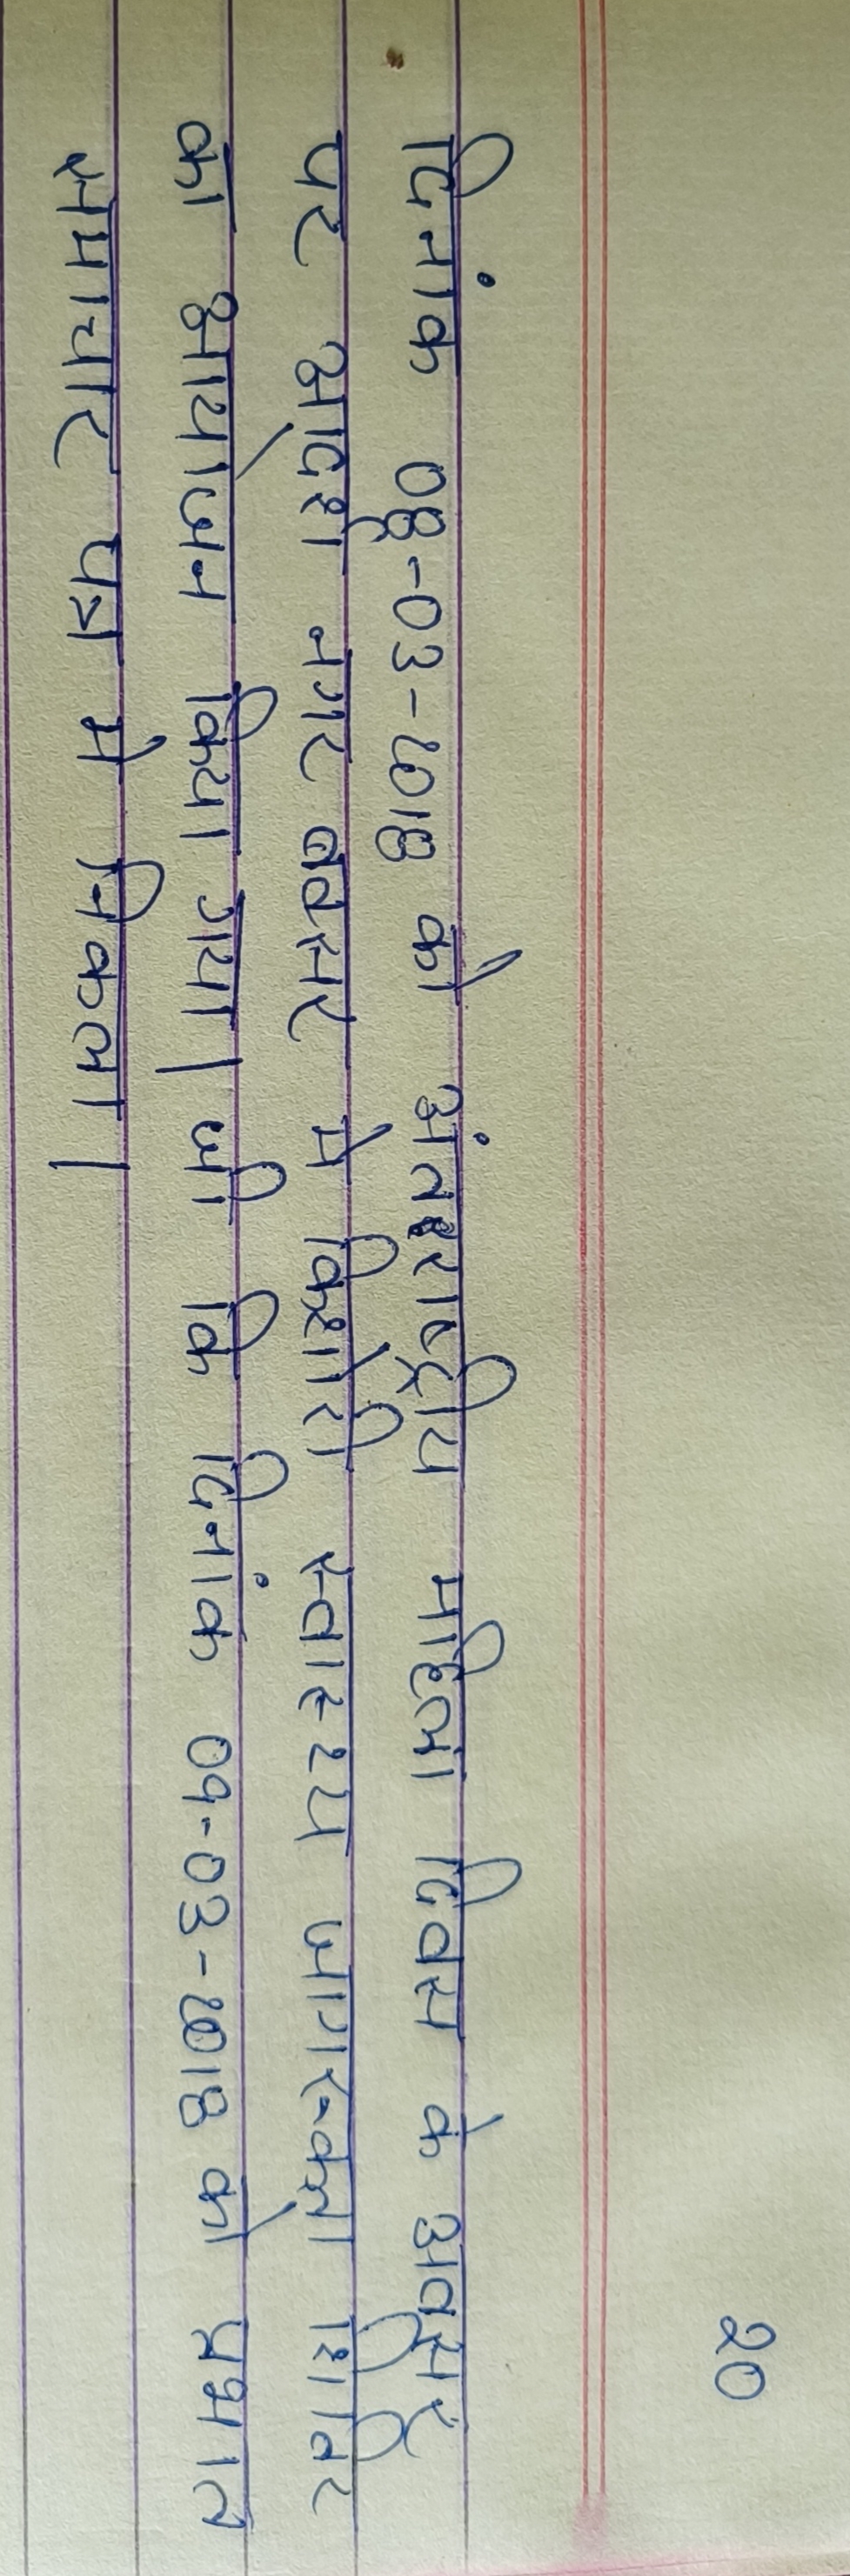 20
दिनांक 08-03-2018 को अंतरराष्ट्रीय महिला दिवस के अवसर
पर आदर्श नगर बक्सर मे किशोरी स्वास्थ्य जागरूकता शिविर
का आयोजन किया गया। जी कि दिनांक 09-03-2018 को प्रभात
समाचार पत्र मे निकला।